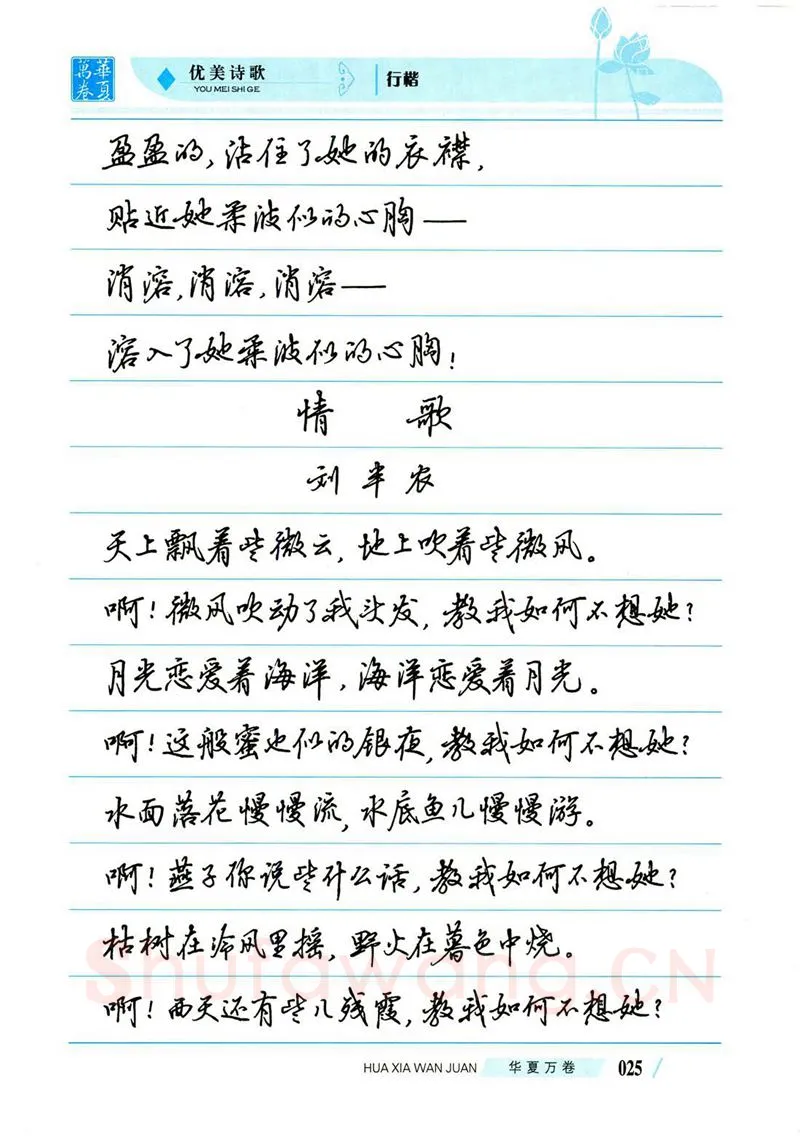 華夏萬卷
优美诗歌
YOU MEI SHI GE
行楷
盈盈的，沾住了她的衣襟，
贴近她柔波似的心胸——
消溶，消溶，消溶——
溶入了她柔波似的心胸！
情 歌
刘半农
天上飘着些微云，地上吹着些微风。
啊！微风吹动了我头发，教我如何不想她？
月光恋爱着海洋，海洋恋爱着月光。
啊！这般蜜也似的银夜，教我如何不想她？
水面落花慢慢流，水底鱼儿慢慢游。
啊！燕子你说些什么话，教我如何不想她？
枯树在冷风里摇，野火在暮色中烧。
啊！西天还有些儿残霞，教我如何不想她？
Shufawang.CN
HUA XIA WAN JUAN 华夏万卷 025